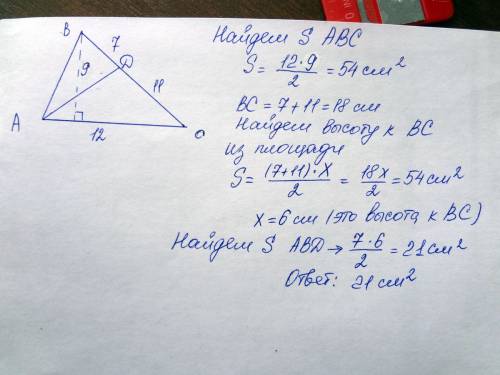 Найдем S ABC
S = 12·9/2 = 54 см²
BC = 7+11 = 18 см
Найдем высоту к BC
из площади
S = (7+11)·x/2 = 18x/2 = 54 см²
x = 6 см (это высота к BC)
Найдем S ABD → 7·6/2 = 21 см²
Ответ: 21 см²
B
7
D
9
11
A
12
C